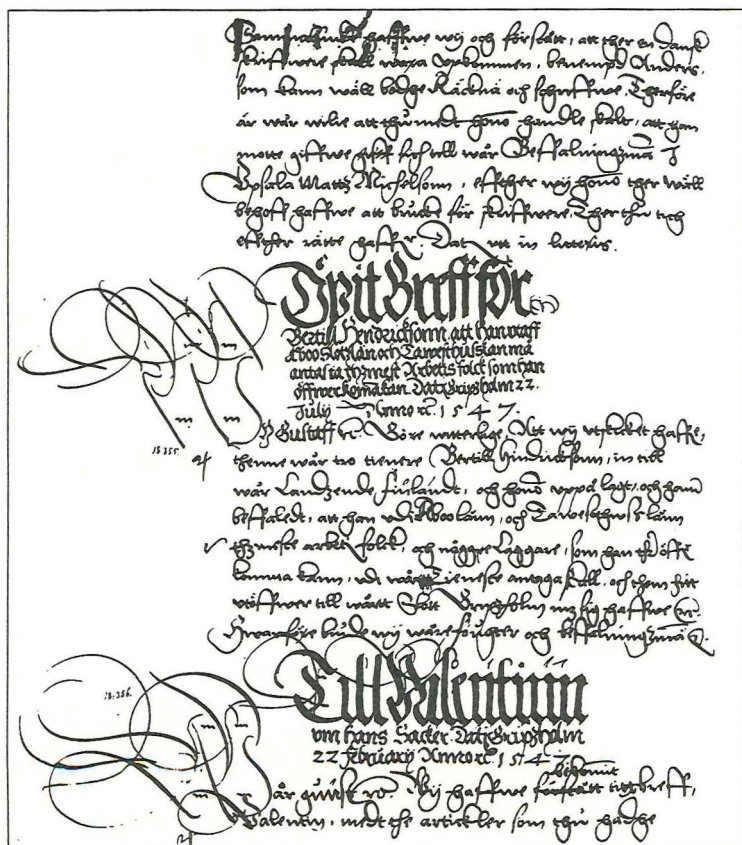 haffwe wij och förstått, att ther en Dansk
skriffwere skall wara vpkommen, benempd Anders,
som kann wäll bådhe Räcknä och schriffwe. Therföre
är wår wilie att thu medt honom handle skalt, att han
motte giffwe sigh till wår Befalningzmä
Vpsala Mattz Michelsonn, effther wij honom ther wäll
behoff haffwe att brucke för skriffwere. Ther thu tich
effther rätte haffr. Dat vt in litteris.
Öpit Breff för
Bertill Hendricksonn att han vtaff
Åboo Slotzlän och Tawesthuslän må
antaga thzmest Arbetis folck som han
öffwerkoma kan. Dat Gripzholm 22.
Julij Anno rc. 1547.
Gustaff rc. Göre witterligt, Att wij vtskicket haffe,
thenne wår tro tienere Bertill Hindricksonn, in till
wår Landzende Finlandt, och honom vppå lagt, och hann
befaledt, att han vdi Åboo länn, och Tawesthws länn
thzmeste arbetz folck, och någgre Laggare, som han
komma kann, vdi wår Tieneste antaga skall, och them hitt
vtöffwer till wårtt Slott Gripzholm mz sig haffwe rc.
Hwarföre biude wij wåre fougter och beffalningzmä
18.355.
Till Valentinum
om Hans Sacker. Dat Gripzholm
22 February Anno rc. 1547.
18.356.
bekomit
år gunst rc. Wij haffwe förstått titt breff,
Valentin, medt the artickler som thu hadhe